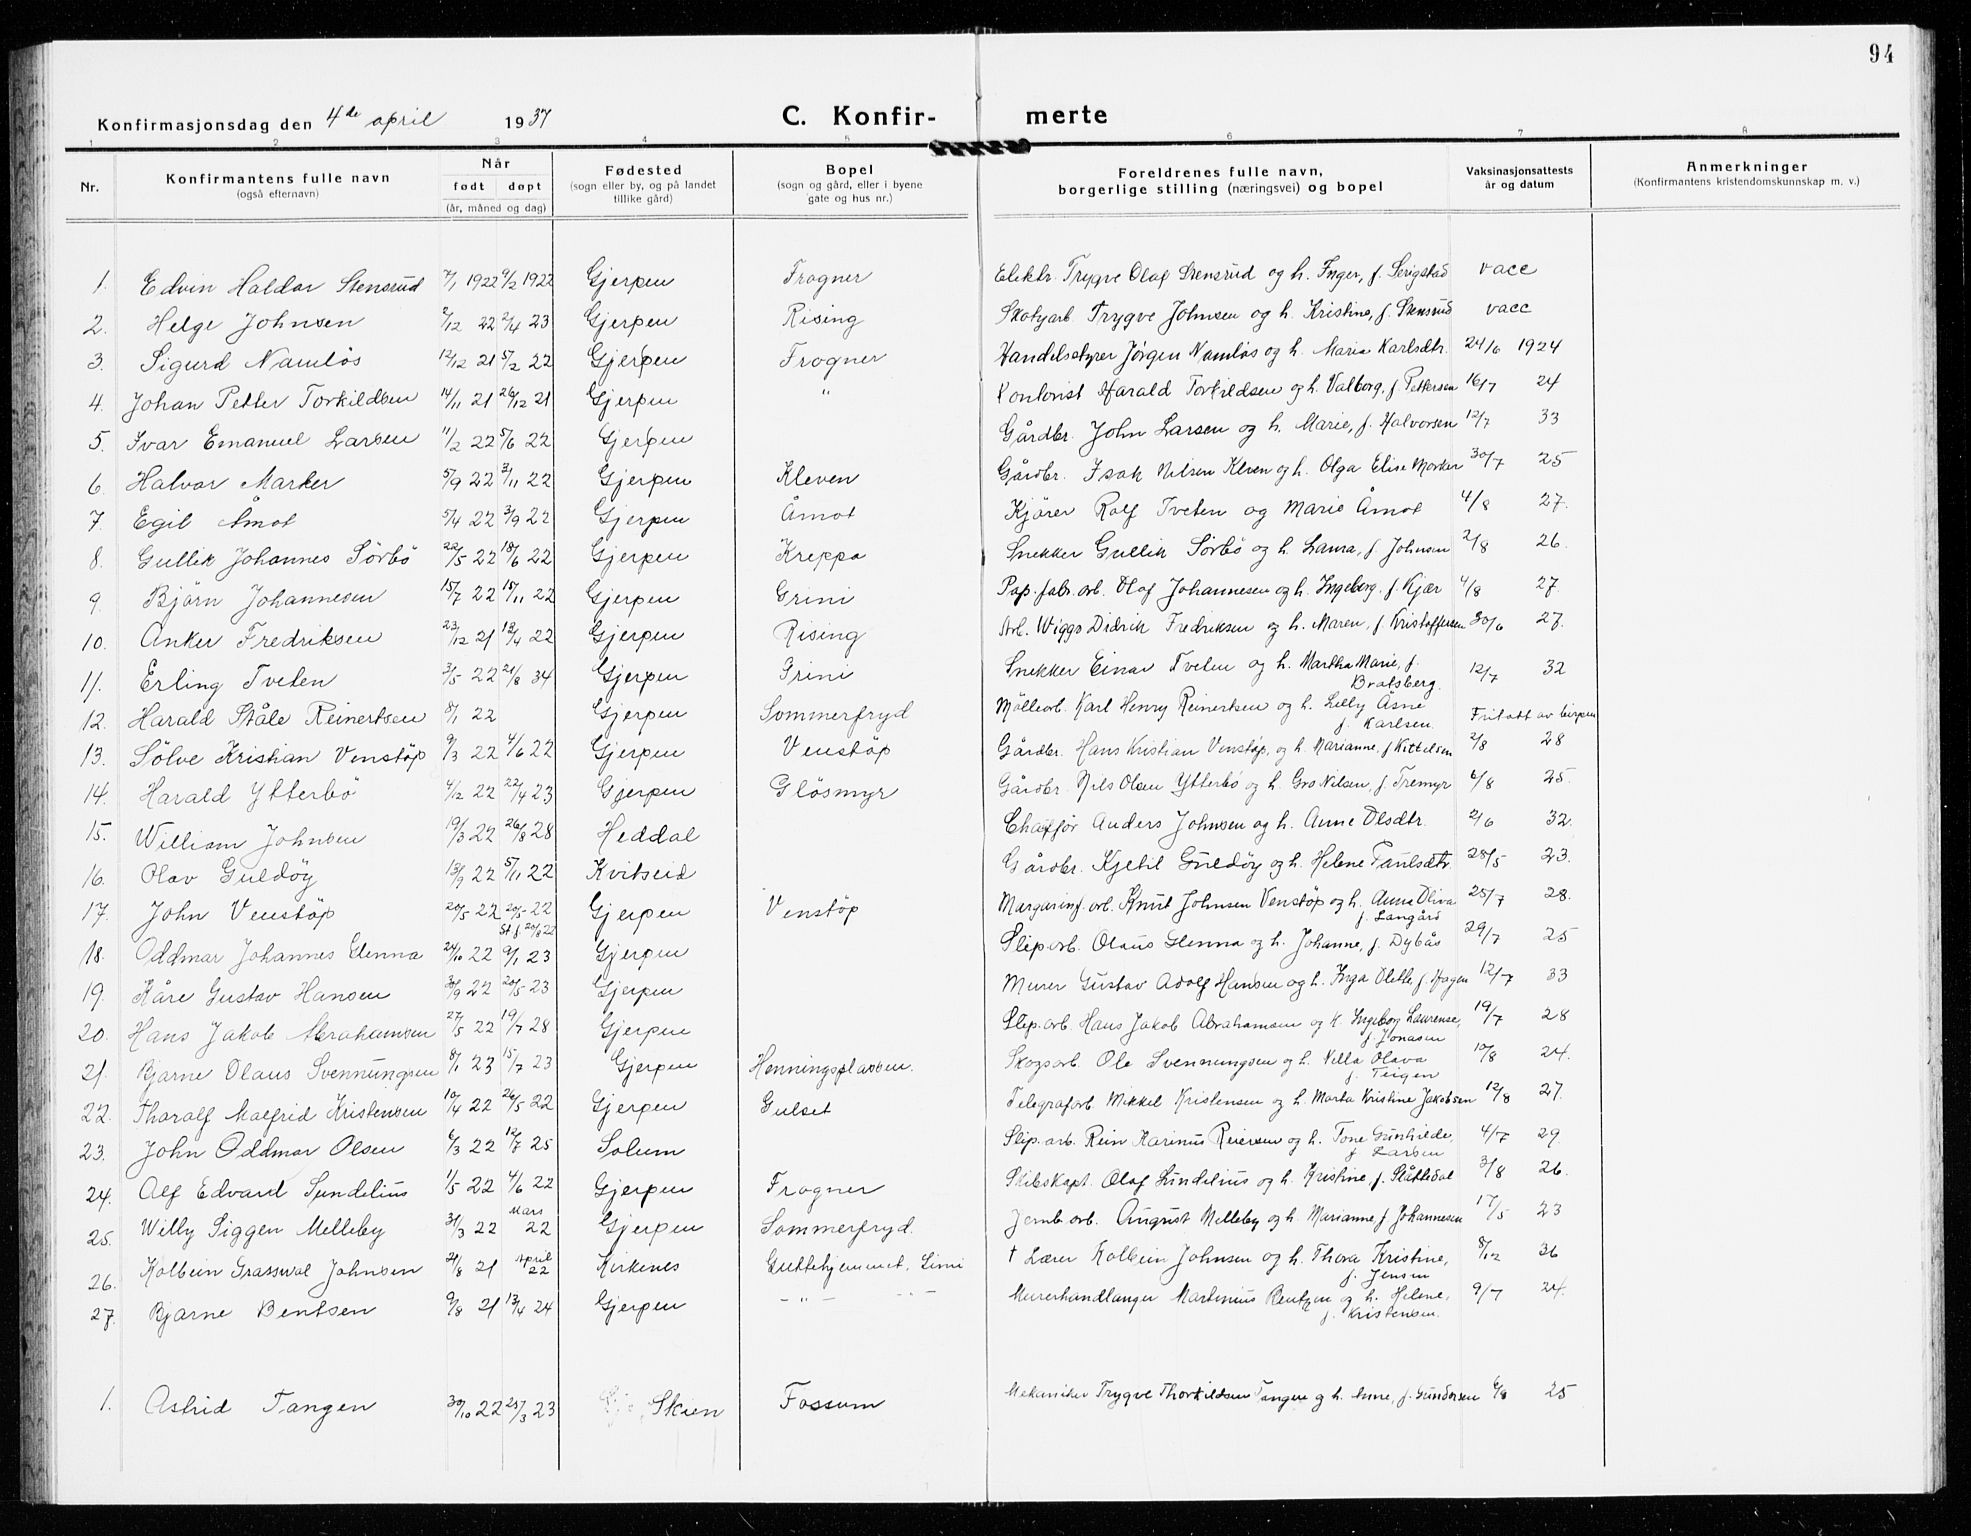 94
Konfirmasjonsdag den 4de april 1937
C. Konfir- merte
1 2 3 4 5 6 7 8
Nr. Konfirmantens fulle navn (også efternavn) Når født døpt (år, måned og dag) Fødested (sogn eller by, og på landet tillike gård) Bopel (sogn og gård, eller i byene gate og hus nr.) Foreldrenes fulle navn, borgerlige stilling (næringsvei) og bopel Vaksinasjonsattests år og datum Anmerkninger (Konfirmantens kristendomskunnskap m. v.)
1. Edvin Haldar Stensrud 7/1 1922 9/2 1922 Gjerpen Frogner Elektr. Trygve Olaf Stensrud og h. Inger, f. Serigstad vacc
2. Helge Johnsen 2/12 22 2/4 23 Gjerpen Rising Skotyarb. Trygve Johnsen og h. Kristine, f. Stensrud vacc
3. Sigurd Namløs 12/12 21 5/2 22 Gjerpen Frogner Handelsstyrer Jørgen Namløs og h. Maria Karlsdtr. 24/6 1924
4. Johan Petter Torkildsen 14/11 21 26/12 21 Gjerpen " Kontorist Harald Torkildsen og h. Valborg, f. Pettersen 16/7 24
5. Ivar Emanuel Larsen 11/2 22 5/6 22 Gjerpen Gårdbr. John Larsen og h. Marie, f. Halvorsen 12/7 33
6. Halvor Marker 5/9 22 3/11 22 Gjerpen Kleven Gårdbr. Isak Nilsen Kleven og h. Olga Elise Marker 30/7 25
7. Egil Åmot 5/4 22 3/9 22 Gjerpen Åmot Kjører Rolf Tveten og Marie Åmot 4/8 27.
8. Gullik Johannes Sørbø 22/5 22 18/6 22 Gjerpen Kreppa Snekker Gullik Sørbø og h. Laura, f. Johnsen 2/8 26.
9. Bjørn Johannesen 15/7 22 15/11 22 Gjerpen Grini Pap.fabr. arb. Olaf Johannesen og h. Ingeborg, f. Kjær 4/8 27.
10. Anker Fredriksen 23/12 21 13/4 22 Gjerpen Rising Arb. Wiggo Didrik Fredriksen og h. Maren, f. Kristoffersen 30/6 27.
11. Erling Tveten 3/5 22 21/8 34 Gjerpen Grini Snekker Einar Tveten og h. Martha Marie, f. Bratsberg. 12/7 32
12. Harald Ståle Reinertsen 8/1 22 Gjerpen Sommerfryd Mølleorb. Karl Henry Reinertsen og h. Lelly Åsne f. Karlsen. Fritatt av bispen
13. Sølve Kristian Venstøp 9/3 22 4/6 22 Gjerpen Venstøp Gårdbr. Hans Kristian Venstøp, og h. Marianne, f. Kittelsen 2/8 28
14. Harald Ytterbø 4/12 22 22/4 23 Gjerpen Gløsmyr Gårdbr. Nils Olsen Ytterbø og h. Gro Nilsen, f. Tremyr 6/8 25.
15. William Johnsen 19/3 22 26/8 28 Heddal Chaffør Anders Johnsen og h. Anne Olsdtr. 2/6 32.
16. Olav Guldøy 13/9 22 5/11 22 Kvitseid Gårdbr. Kjetil Guldøy og h. Helene Paulsdtr. 28/5 23.
17. John Venstøp 20/5 22 20/5 22 St. f. 20/8 22 Gjerpen Venstøp Margarinf. arb. Knut Johnsen Venstøp og h. Anna Oliva f. Langård 25/7 28.
18. Oddmar Johannes Glenna 24/10 22 9/1 23 Gjerpen Slip.arb. Olaus Glenna og h. Johanne, f. Dybås 29/7 25
19. Kåre Gustav Hansen 30/9 22 20/5 23 Gjerpen Murer Gustav Adolf Hansen og h. Inga Olette, f. Hagen 12/7 33
20. Hans Jakob Abrahamsen 27/5 22 19/7 28 Gjerpen Slip.arb. Hans Jakob Abrahamsen og h. Ingeborg Laurense, f. Jonasen 19/7 28
21. Bjarne Olaus Svennungsen 8/1 23 15/7 23 Gjerpen Henningsplassen. Skogsarb. Ole Svennungsen og h. Nella Olava f. Teigen 10/8 24.
22. Tharalf Malfrid Kristensen 10/4 22 26/5 22 Gjerpen Gulset Telegrafarb. Mikkel Kristensen og h. Marta Kristine Jakobsen 12/8 27.
23. John Oddmar Olsen 6/3 22 12/7 25 Solum Slip. arb. Rein Karinus Reiersen og h. Tone Gunhilde, f. Larsen 4/7 29.
24. Alf Edvard Lundelius 1/5 22 4/6 22 Gjerpen Frogner Skibskapt. Olaf Lundelius og h. Kristine, f. Slåttedal 3/8 26.
25. Willy Siggen Melleby 31/3 22 Mars 22 Gjerpen Sommerfryd. Jernb. arb. August Melleby og h. Marianne, f. Johannesen 17/5 23
26. Kolbein Grasswal Johnsen 21/8 21 April 22 Kirkenes Guttehjemmet, Limi † Lærer Kolbein Johnsen og h. Thora Kristine, f. Jensen 8/12 36
27. Bjarne Bentsen 9/8 21 13/4 24 Gjerpen - " - Murerhandlanger Martinius Bentzen og h. Helene, f. Kristensen. 9/7 24.
1. Astrid Tangen 30/10 22 25/3 23 Skien Fossum Mekaniker Trygve Thorkildsen Tangen og h. Anne, f. Gundersen 6/8 25